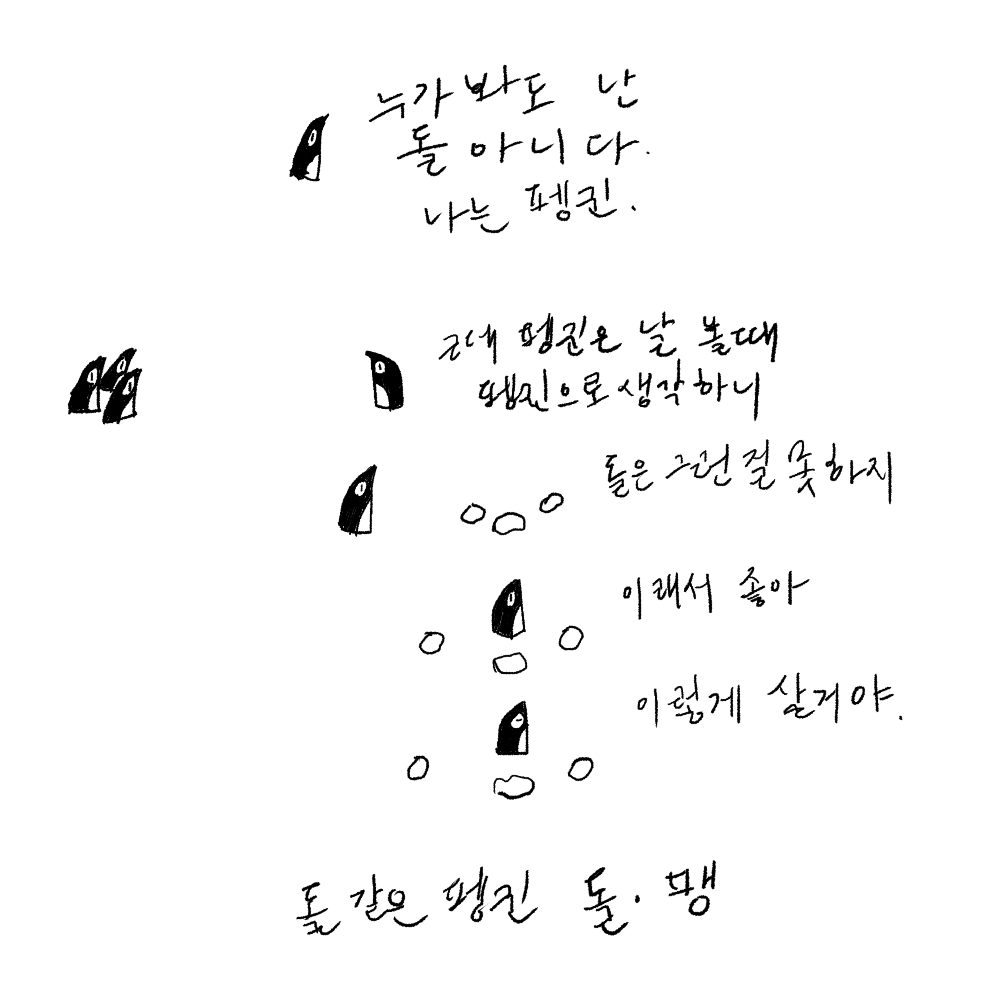 누가봐도 난
돌 아니다.
나는 펭귄.
근데 펭귄은 날 볼때
펭귄으로 생각하니
돌은 그런 걸 못하지
이래서 좋아
이렇게 살거야.
돌 같은 펭귄 돌·팽